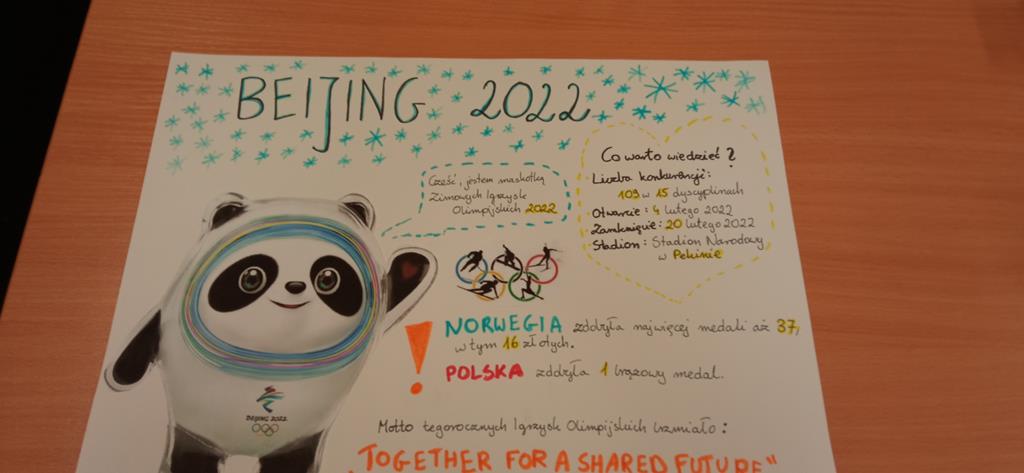 BEIJING 2022
Cześć, jestem maskotką
Zimowych Igrzysk
Olimpijskich 2022
Co warto wiedzieć?
Liczba konkurencji:
109 w 15 dyscyplinach
Otwarcie: 4 lutego 2022
Zamknięcie: 20 lutego 2022
Stadion: Stadion Narodowy
w Pekinie
NORWEGIA zdobyła najwięcej medali aż 37,
w tym 16 złotych.
POLSKA zdobyła 1 brązowy medal.
BEIJING 2022
Motto tegorocznych Igrzysk Olimpijskich brzmiało:
„TOGETHER FOR A SHARED FUTURE"